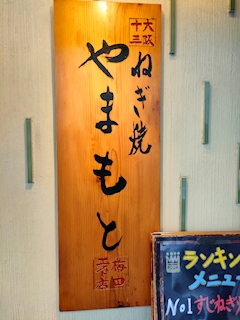 大阪
十三
ねぎ焼
やまもと
梅田
エスト店
ランキン
メニュ
No1すじねぎ